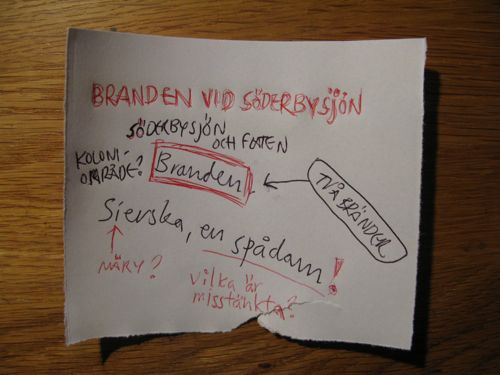 BRANDEN VID SÖDERBYSJÖN
SÖDERBYSJÖN
OCH FOTEN
KOLONI-
OMRÅDE?
Branden.
TVÅ BRÄNDER
Sierska, en spådam!
NÄRY?
vilka är
misstänkta?